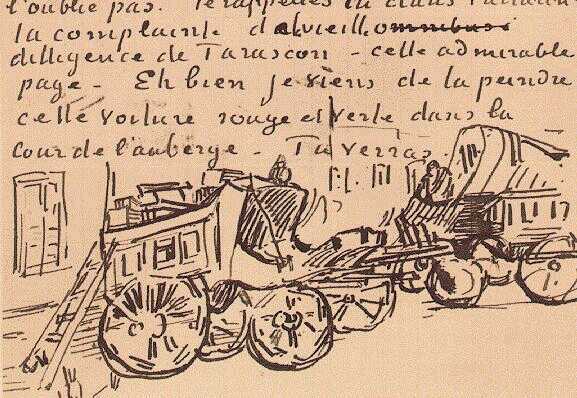 l'oublie pas. Te rappelles tu dans Tartarin
la complainte de la vieille
diligence de Tarascon - cette admirable
page - Eh bien je viens de la peindre
cette voiture rouge et verte dans la
cour de l'auberge - Tu verras.